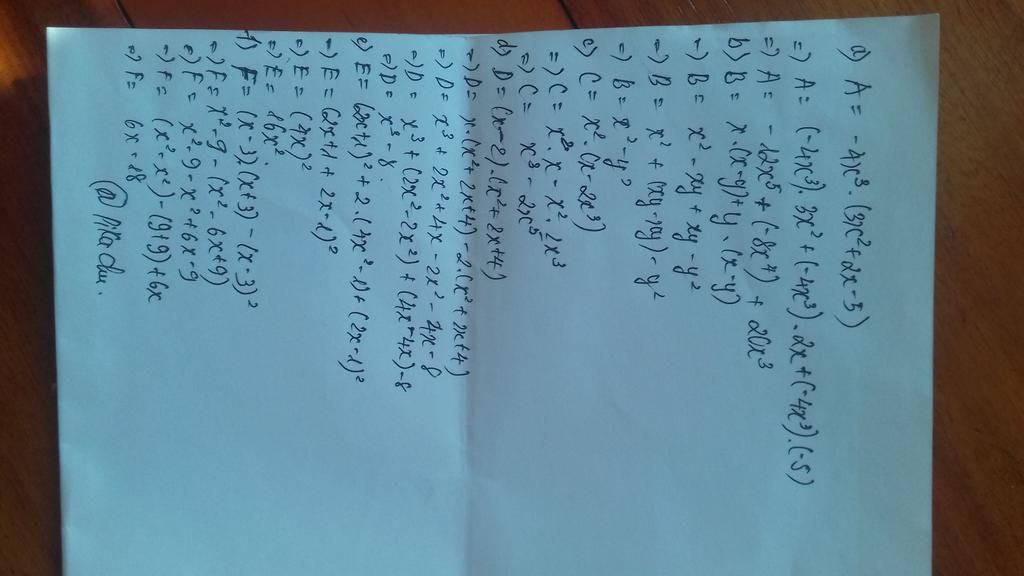 a) A = -4x³.(3x²+2x-5)
=) A = (-4x³).3x²+(-4x³).2x+(-4x³).(-5)
=) A = -12x⁵+(-8x⁴)+20x³
b) B = x.(x-y)+y.(x-y)
=) B = x²-xy+xy-y²
=) B = x²+(xy-xy)-y²
=) B = x²-y²
c) C = x².(x-2x³)
=) C = x².x-x².2x³
=) C = x³-2x⁵
d) D = (x-2).(x²+2x+4)
=) D = x.(x²+2x+4)-2.(x²+2x+4)
=) D = x³+2x²+4x-2x²-4x-8
=) D = x³+(2x²-2x²)+(4x-4x)-8
=) D = x³-8.
e) E = (2x+1)²+2.(4x²-1)+(2x-1)²
=) E = (2x+1+2x-1)²
=) E = (4x)²
=) E = 16x².
f) F = (x-3)(x+3)-(x-3)²
=) F = x²-9-(x²-6x+9)
=) F = x²-9-x²+6x-9
=) F = (x²-x²)-(9+9)+6x
=) F = 6x-18